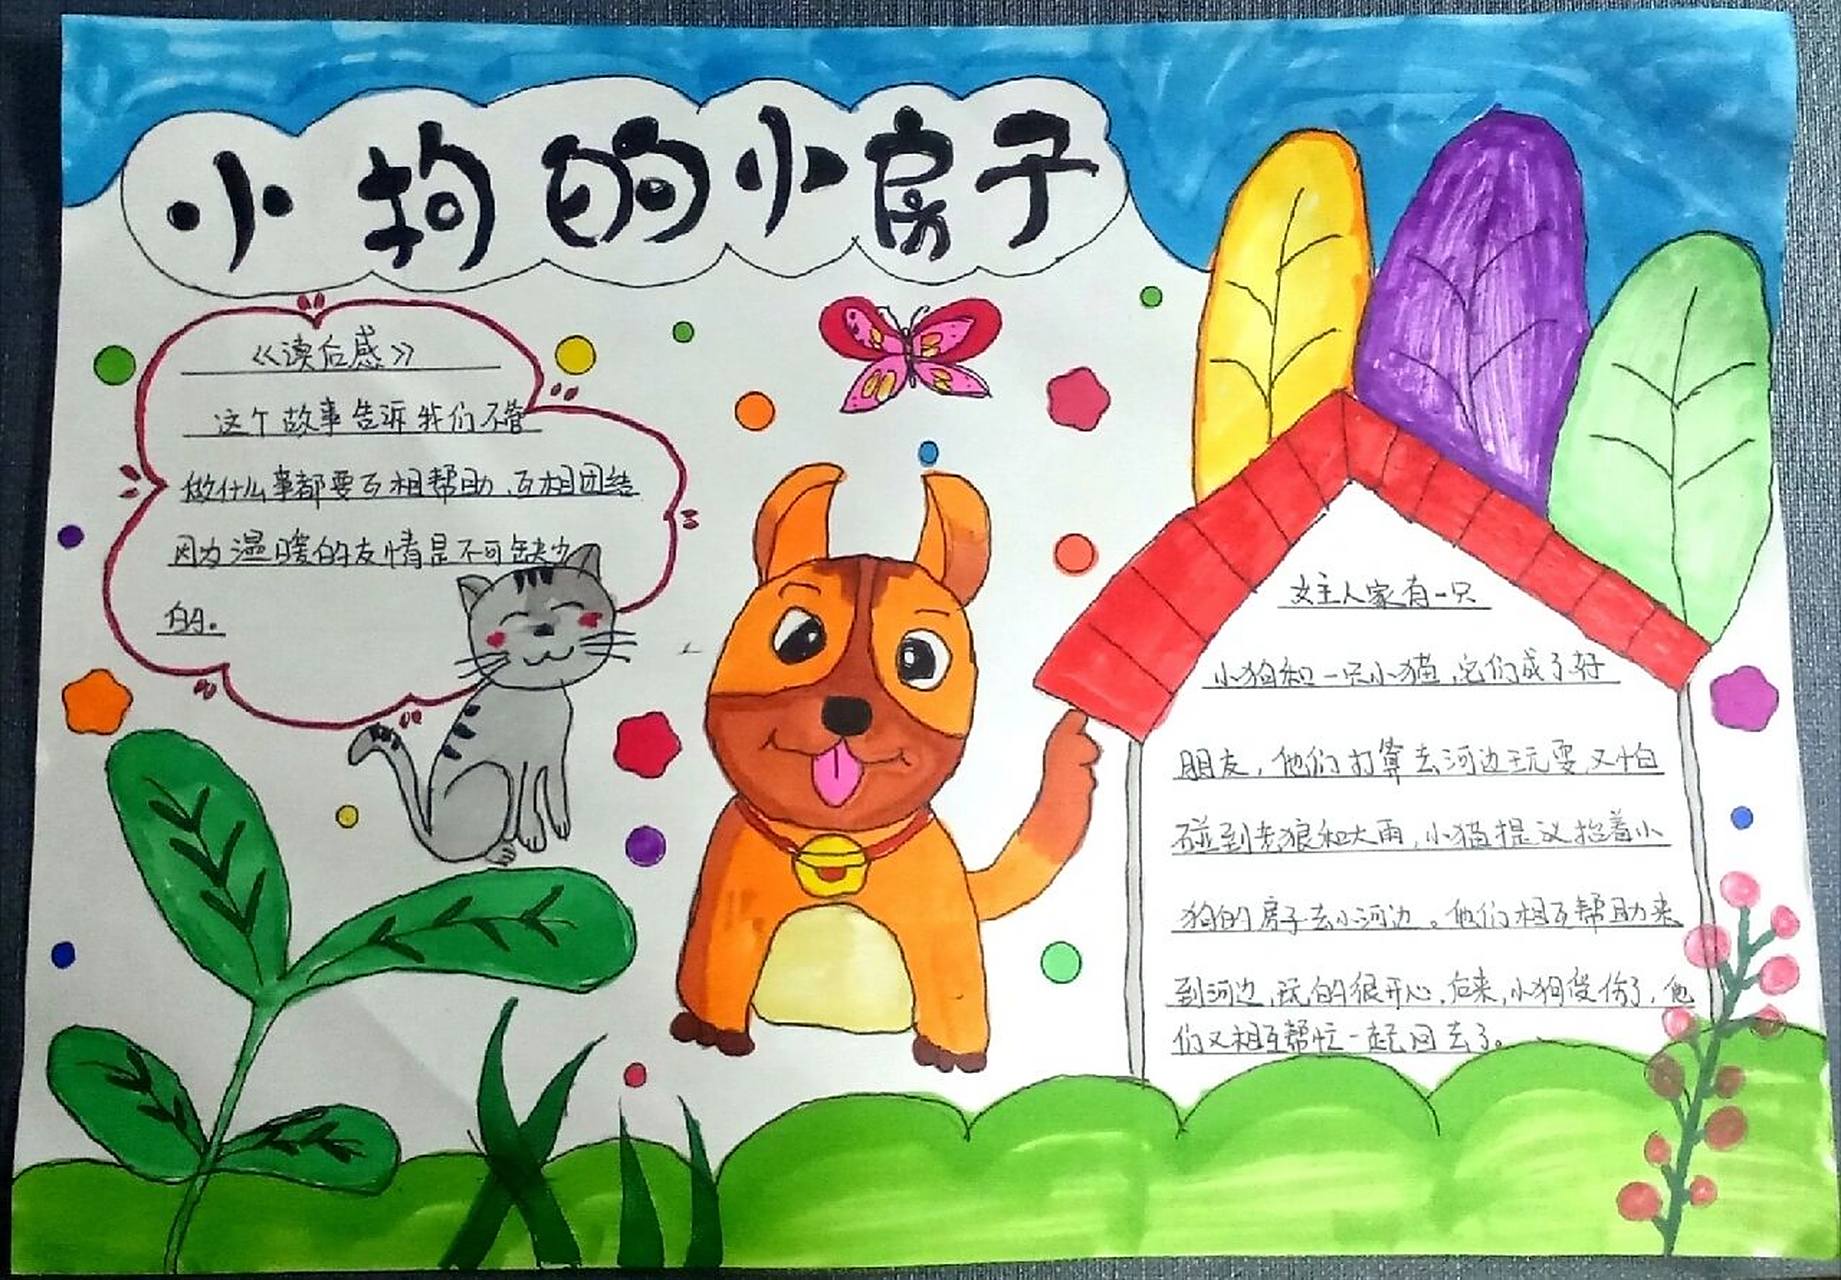 小狗的小房子
《读后感》
这个故事告诉我们不管
做什么事都要互相帮助、互相团结
因为温暖的友情是不可缺少
的。
女主人家有一只
小狗和一只小猫,它们成了好
朋友,他们打算去河边玩耍又怕
碰到老狼和大雨,小猫提议抬着小
狗的房子去小河边。他们相互帮助来
到河边,玩的很开心,后来,小狗受伤了,他
们又相互帮忙一起回去了。